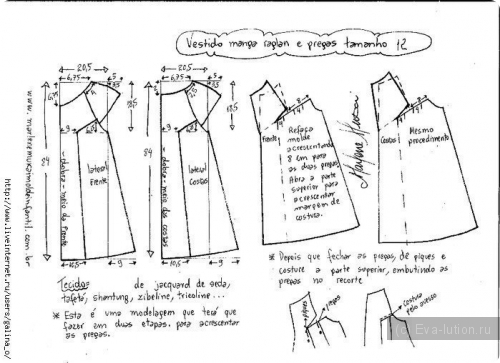 Vestido manga raglan e pregas tamanho 12
20,5
6,75
5
3,5
9
84
dobra - meio da frente
lateral
Frente
10,5
9
20,5
6,75
5
3,5
9
84
dobra - meio das costas
lateral
Costas
10,5
9
Frente
Refaça
molde
acrescentando
8 cm para
as duas pregas.
Abra a parte
superior para
acrescentar
margem de
costura.
Costas
Mesmo
procedimento
Tecidos
de jacquard de seda,
tafetá, shantung, zibeline, tricoline...
* Esta é uma modelagem que terá que
fazer em duas etapas. para acrescentar
as pregas.
* Depois que fechar as pregas, dê piques e
costure a parte superior, embutindo as
pregas no recorte
piques
pregas
costura
http://www.liveinternet.ru/users/galina_o/
(c) Eva-lution.ru